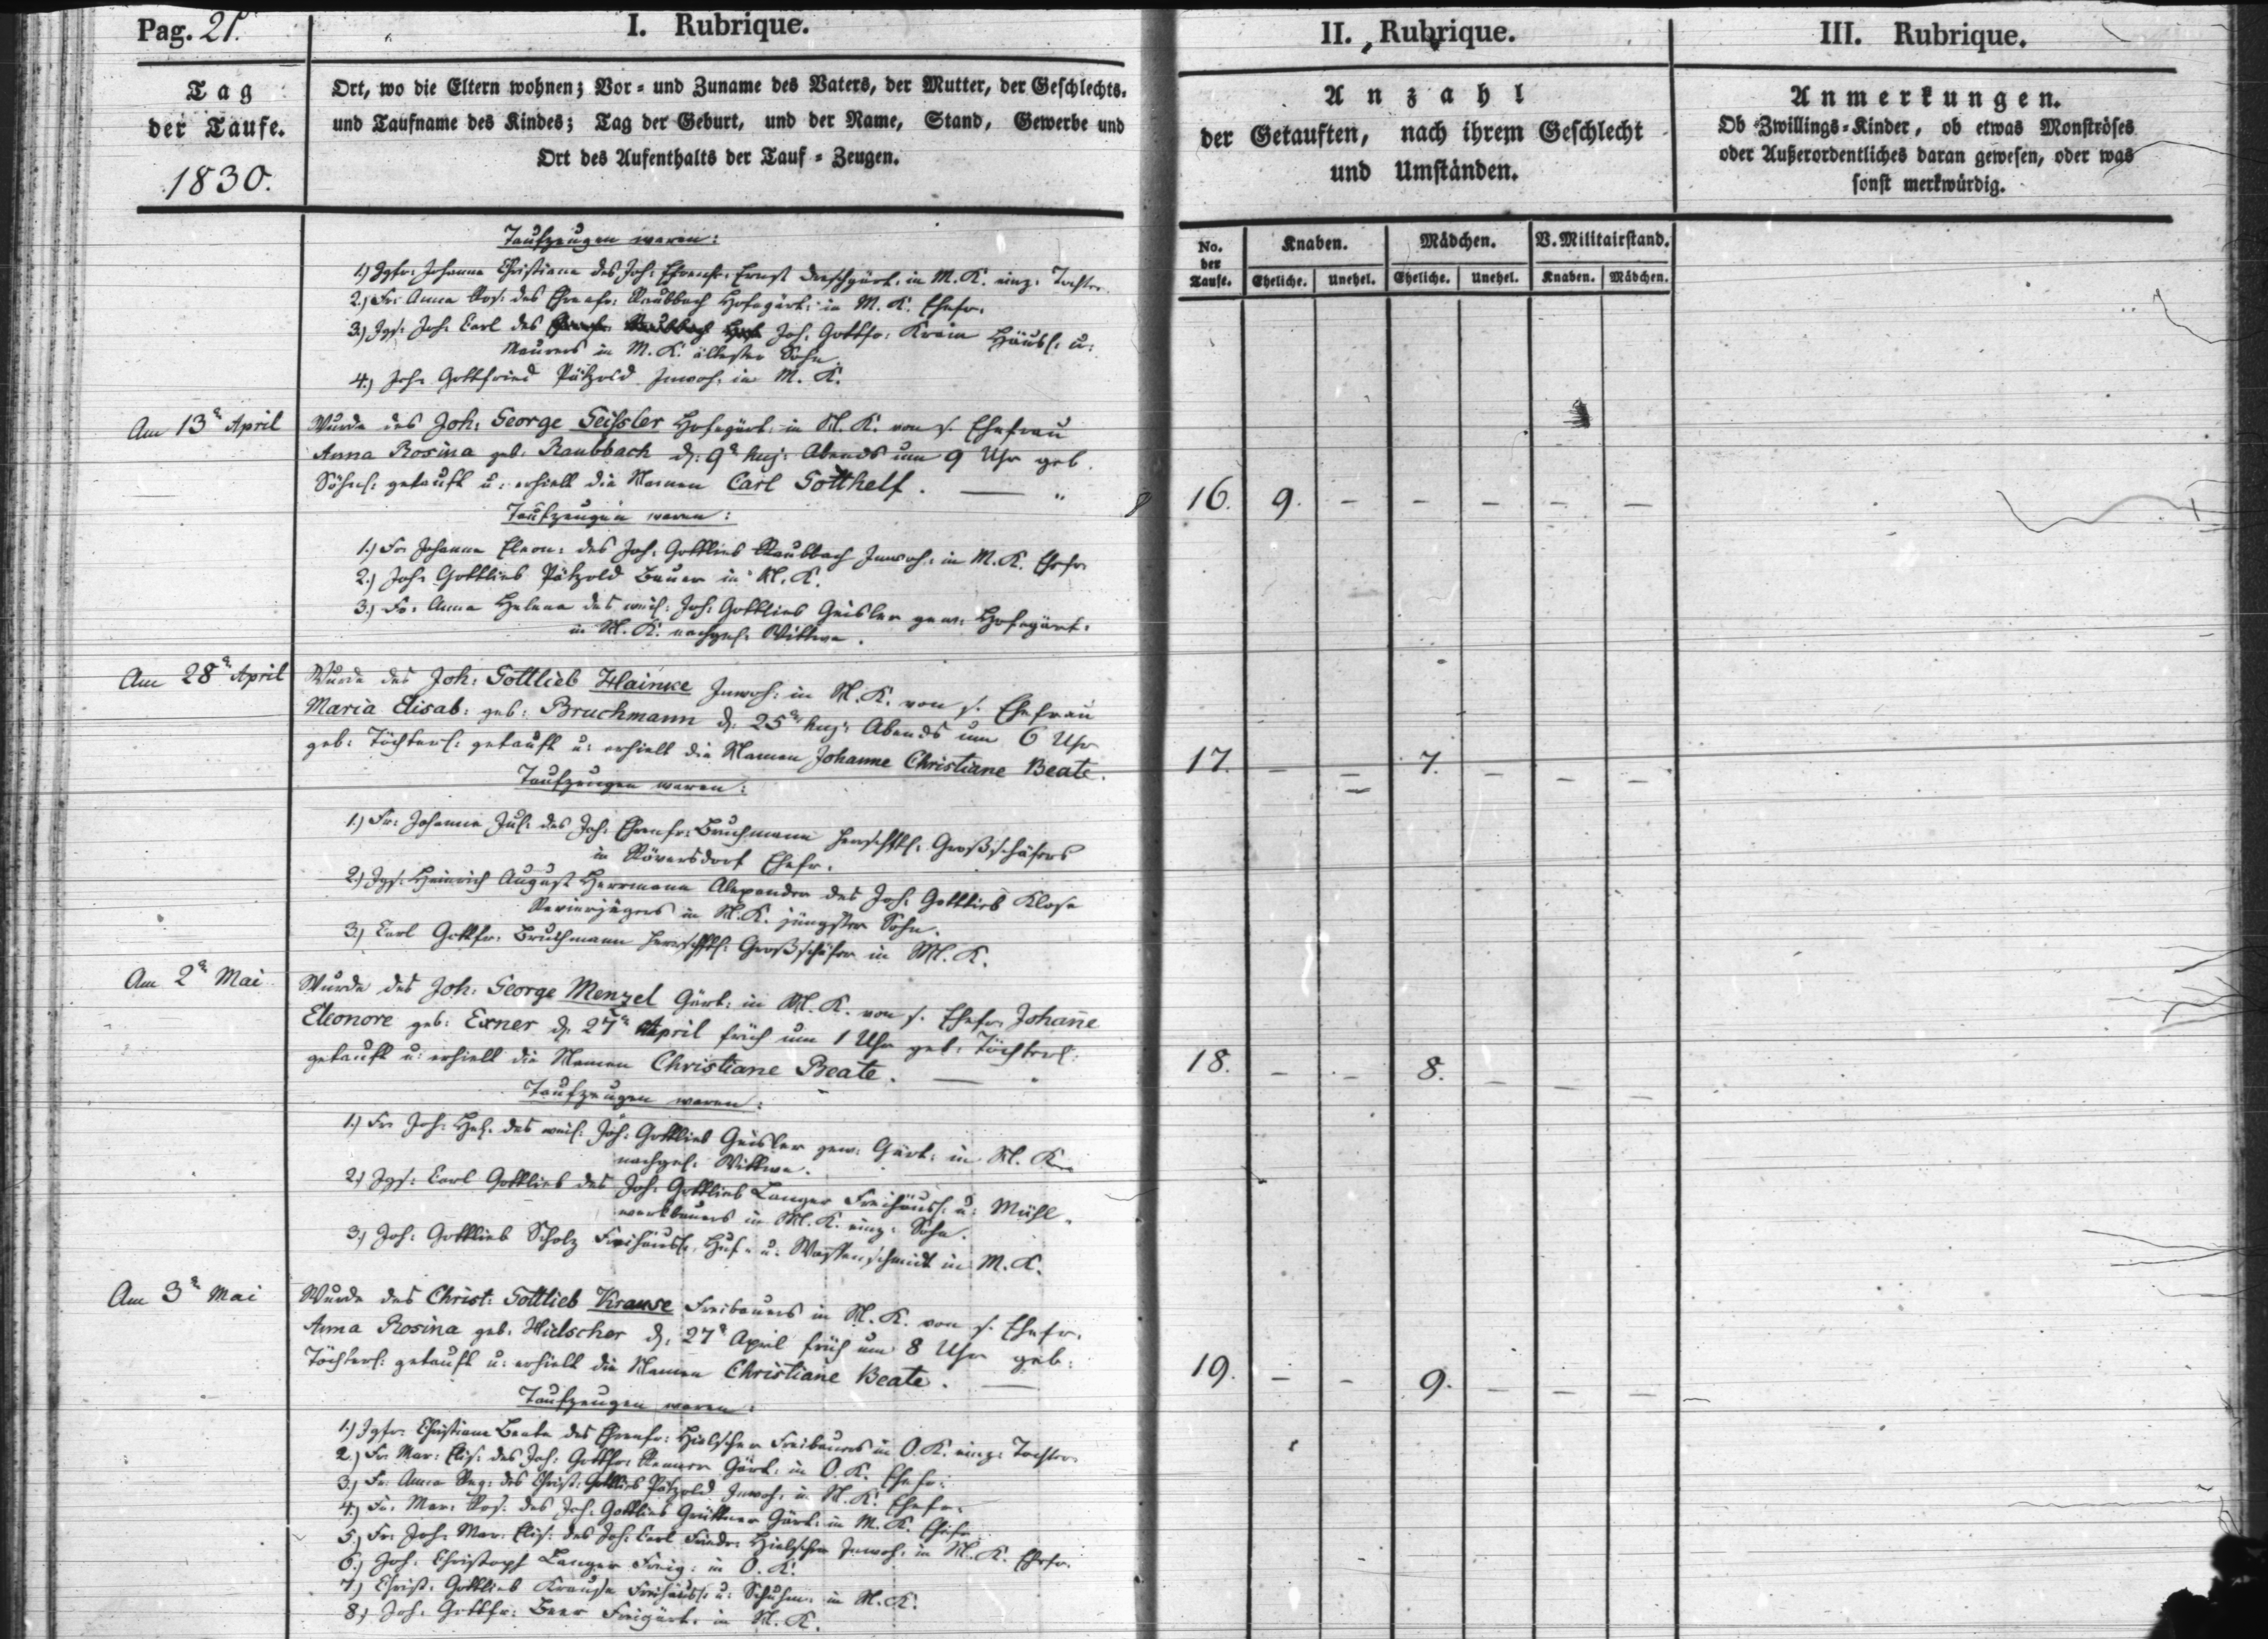 Pag. 21.
I. Rubrique.
II. Rubrique.
III. Rubrique.
Tag
der Taufe.
1830.
Ort, wo die Eltern wohnen; Vor- und Zuname des Vaters, der Mutter, der Geschlechts-
und Taufname des Kindes; Tag der Geburt, und der Name, Stand, Gewerbe und
Ort des Aufenthalts der Tauf-Zeugen.
Anzahl
der Getauften, nach ihrem Geschlecht
und Umständen.
Anmerkungen.
Ob Zwillings-Kinder, ob etwas Monströses
oder Außerordentliches daran gewesen, oder was
sonst merkwürdig.
No. der Taufe.
Knaben. Mädchen. V. Militairstand.
Eheliche. Unehel. Eheliche. Unehel. Knaben. Mädchen.
Taufzeugen waren:
1.) Jgfr. Johanna Christiana des Joh: Ehrenfr: Ernst Dreschgärt. in M. K. einz: Tochter
2.) Fr: Anna Ros: des Ehrenfr: Raubbach Hofegärt: in M. K. Ehefr.
3.) Jgs: Joh: Carl des Joh: Gottfr: Häusl: u:
Maurers in M. K. ältester Sohn.
4.) Joh: Gottfried Pätzold Inwoh: in M. K.
Am 13n April
Wurde des Joh: George Geissler Hofegärt: in M. K. von s. Ehefrau
Anna Rosina geb: Raubbach d: 9n huj: Abends um 9 Uhr geb.
Söhnl: getauft u: erhielt die Namen Carl Gotthelf. —
16. 9. - - - - -
Taufzeugen waren:
1.) Fr: Johanna Eleon: des Joh: Gottlieb Raubbach Inwoh: in M. K. Ehefr.
2.) Joh: Gottlieb Pätzold Bauer in M. K.
3.) Fr: Anna Helena des weil: Joh: Gottlieb Geisler gew: Hofegärt:
in M. K. nachgel: Wittwe.
Am 28n April
Wurde des Joh: Gottlieb Hainke Inwoh: in M. K. von s. Ehefrau
Maria Elisab: geb: Bruchmann d: 25n huj: Abends um 6 Uhr
geb: Töchterl: getauft u: erhielt die Namen Johanne Christiane Beate.
17. - - 7. - - -
Taufzeugen waren:
1.) Fr: Johanna Jul: des Joh: Ehrenfr: Bruchmann herrschftl: Großschäfers
in Röversdorf Ehefr.
2.) Jgs: Heinrich August Herrmann Alexander des Joh: Gottlieb Klose
Revierjägers in M. K. jüngster Sohn.
3.) Carl Gottfr: Bruchmann herrschftl: Großschäfer in M. K.
Am 2n Mai
Wurde des Joh: George Menzel Gärt: in M. K. von s. Ehefr: Johane
Eleonore geb: Exner d: 27n April früh um 1 Uhr geb: Töchterl:
getauft u: erhielt die Namen Christiane Beate. —
18. - - 8. - - -
Taufzeugen waren:
1.) Fr: Joh: Hel: des weil: Joh: Gottlieb Geisler gew: Gärt: in M. K.
nachgel: Wittwe.
2.) Jgs: Carl Gottlieb des Joh: Gottlieb Langer Freihäusl: u: Mühl-
werkbauers in M. K. einz: Sohn.
3.) Joh: Gottlieb Scholz Freihäusl: Huf- u: Waffenschmidt in M. K.
Am 3n Mai
Wurde des Christ: Gottlieb Krause Freibauers in M. K. von s. Ehefr.
Anna Rosina geb: Hielscher d: 27n April früh um 8 Uhr geb:
Töchterl: getauft u: erhielt die Namen Christiane Beate. —
19. - - 9. - - -
Taufzeugen waren:
1.) Jgfr: Christiane Beate des Ehrenfr: Hielscher Freibauers in O. K. einz: Tochter
2.) Fr: Mar: Elis: des Joh: Gottfr: Renner Gärt: in O. K. Ehefr:
3.) Fr: Anna Reg: des Christ: Gottlieb Pätzold Inwoh: in M. K. Ehefr.
4.) Fr: Mar: Ros: des Joh: Gottlieb Grüttner Gärt: in M. K. Ehefr.
5.) Fr: Joh: Mar: Elis: des Joh: Carl Friedr: Hielscher Inwoh: in M. K. Ehefr.
6.) Joh: Christoph Langer Freig: in O. K.
7.) Christ: Gottlieb Krause Freihäusl: u: Schuhm: in M. K.
8.) Joh: Gottfr: Beer Freigärt: in M. K.